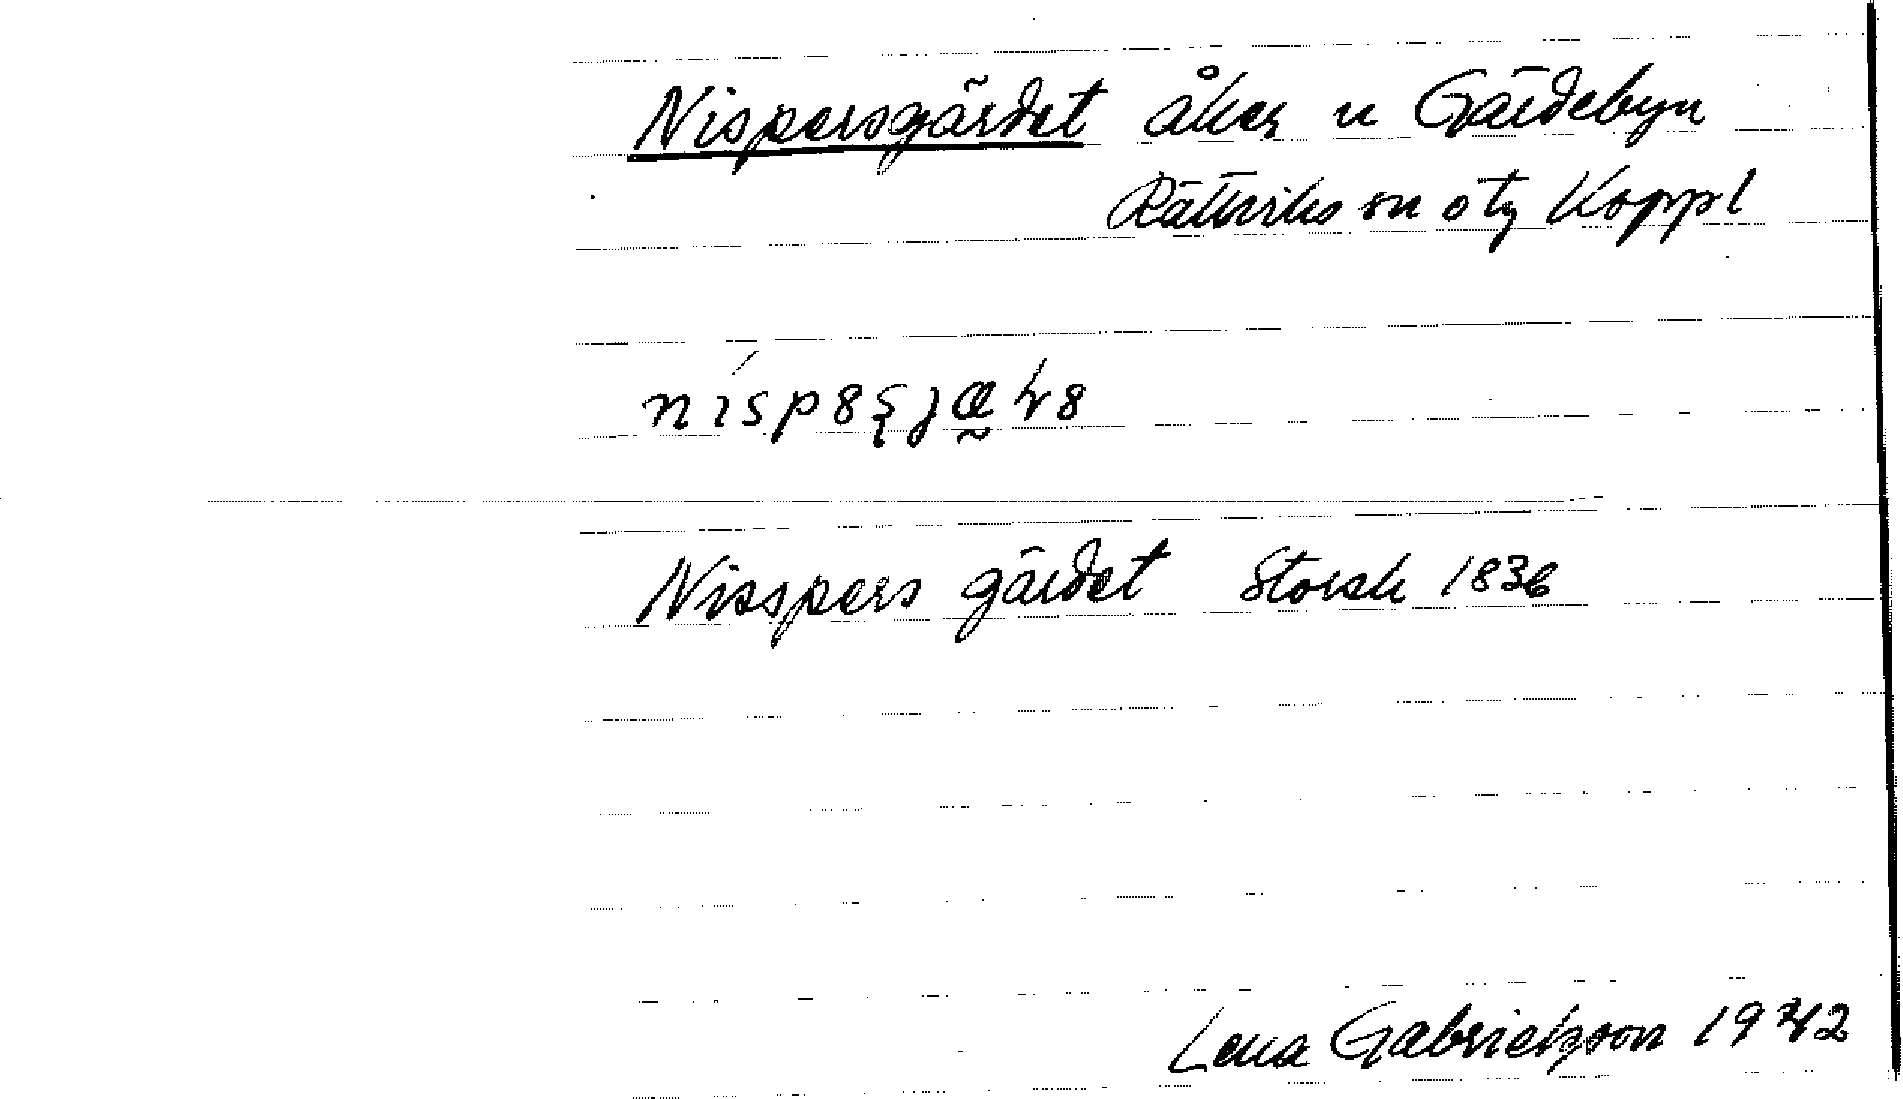 Nispersgärdet åker u Gärdebyn
Rättviks sn o tg Koppl
Nisspers gärdet Storsk 1836
Lena Gabrielsson 1942